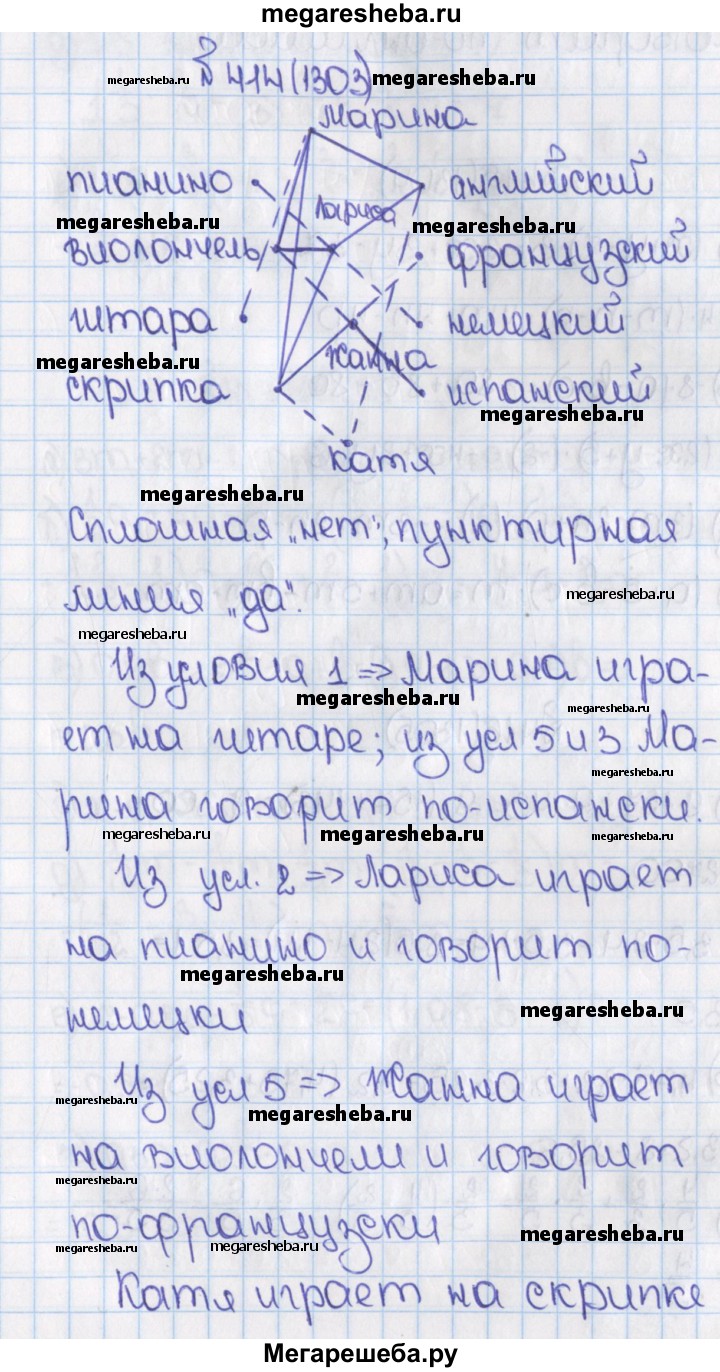 megaresheba.ru
№ 414 (1303)
megaresheba.ru megaresheba.ru
Марина
пианино английский
Лариса
megaresheba.ru megaresheba.ru
виолончель французский
гитара немецкий
Жанна
megaresheba.ru
скрипка испанский
megaresheba.ru
Катя
megaresheba.ru
Сплошная „нет", пунктирная
линия „да".
megaresheba.ru
megaresheba.ru
Из условия 1 => Марина игра-
megaresheba.ru
megaresheba.ru
ет на гитаре; из усл 5 и 3 Ма-
megaresheba.ru
рина говорит по-испански.
megaresheba.ru megaresheba.ru megaresheba.ru
Из усл. 2 => Лариса играет
на пианино и говорит по-
megaresheba.ru
немецки
megaresheba.ru
Из усл 5 => Жанна играет
megaresheba.ru
megaresheba.ru
на виолончели и говорит
megaresheba.ru
по-французски
megaresheba.ru megaresheba.ru megaresheba.ru
Катя играет на скрипке
Мегарешеба.ру